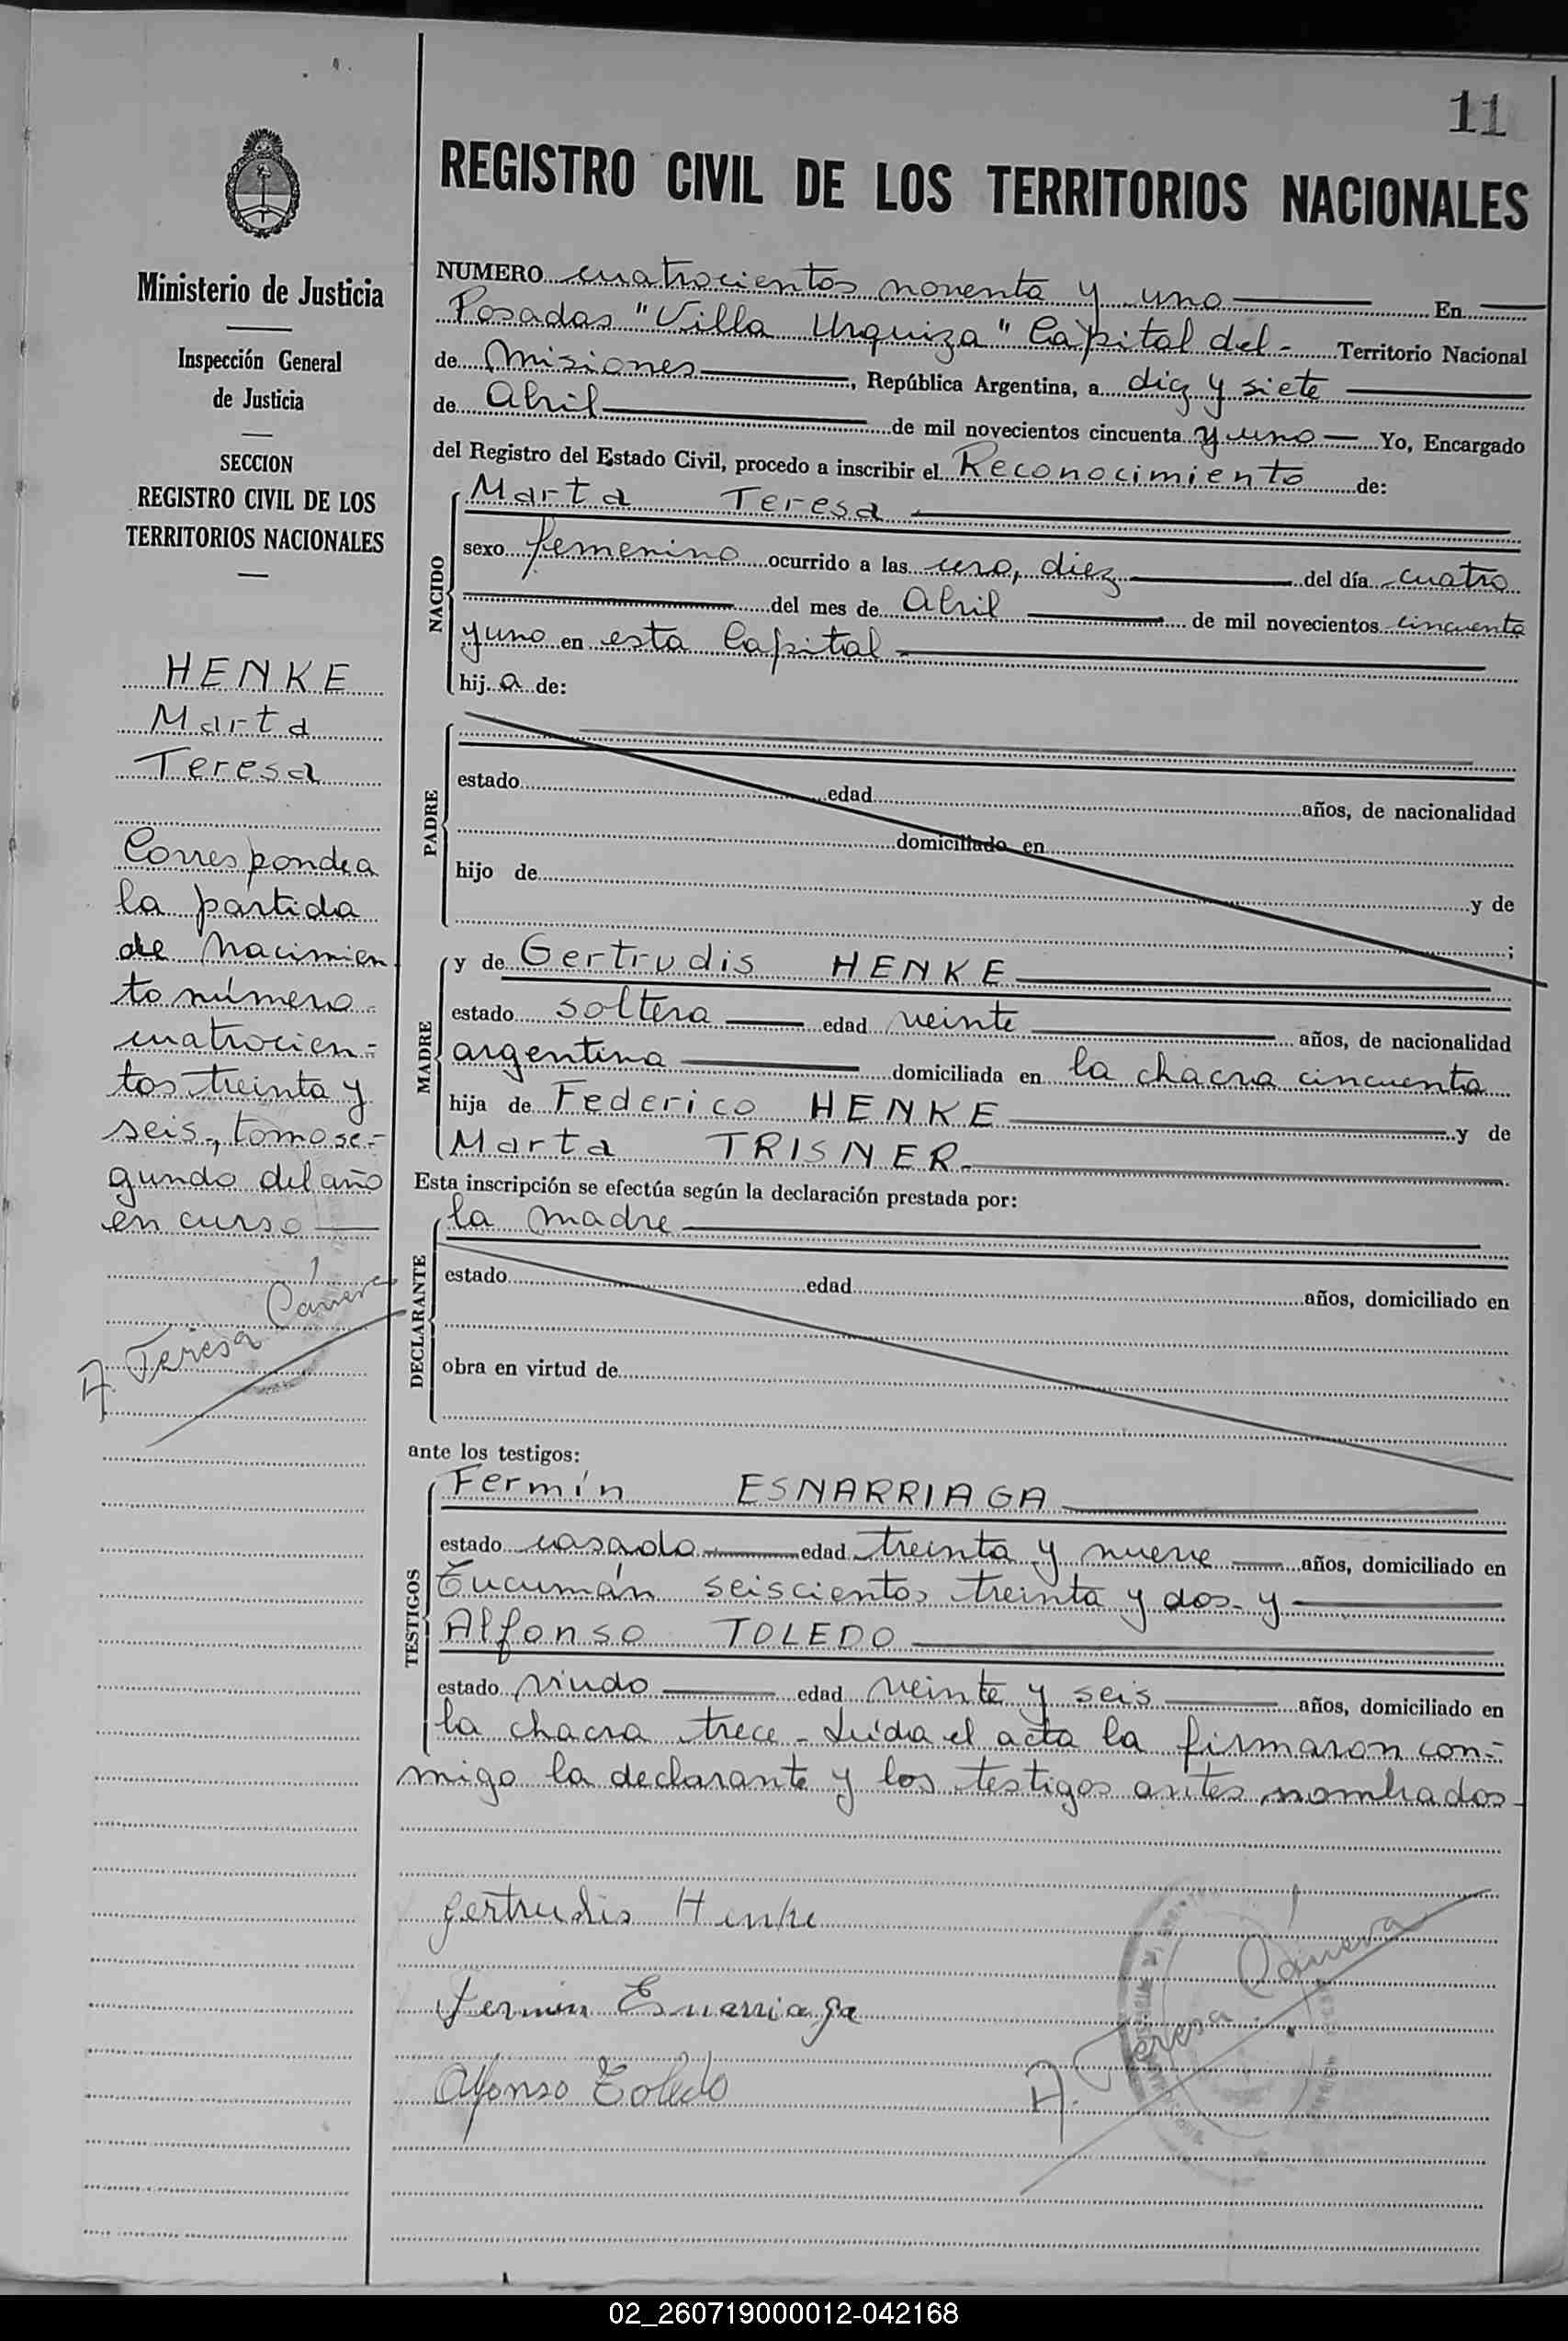 11
REGISTRO CIVIL DE LOS TERRITORIOS NACIONALES
Ministerio de Justicia
Inspección General
de Justicia
SECCION
REGISTRO CIVIL DE LOS
TERRITORIOS NACIONALES
HENKE
Marta
Teresa
Corresponde a
la partida
de nacimien
to número
cuatrocien-
tos treinta y
seis, tomo se-
gundo del año
en curso
A. Teresa Cánera
NUMERO cuatrocientos noventa y uno En
Posadas "Villa Urquiza" Capital del - Territorio Nacional
de Misiones, República Argentina, a diez y siete
de Abril de mil novecientos cincuenta y uno Yo, Encargado
del Registro del Estado Civil, procedo a inscribir el Reconocimiento de:
NACIDO
Marta Teresa
sexo femenino ocurrido a las cero, diez del día cuatro
del mes de Abril de mil novecientos cincuenta
y uno en esta Capital
hija de:
PADRE
estado edad años, de nacionalidad
domiciliado en
hijo de y de
;
MADRE
y de Gertrudis HENKE
estado soltera edad veinte años, de nacionalidad
argentina domiciliada en la chacra cincuenta
hija de Federico HENKE y de
Marta TRISNER.
Esta inscripción se efectúa según la declaración prestada por:
DECLARANTE
la madre
estado edad años, domiciliado en
obra en virtud de
ante los testigos:
TESTIGOS
Fermín ESNARRIAGA
estado casado edad treinta y nueve años, domiciliado en
Tucumán seiscientos treinta y dos - y
Alfonso TOLEDO
estado viudo edad veinte y seis años, domiciliado en
la chacra trece - Leída el acta la firmaron con-
migo la declarante y los testigos antes nombrados -
Gertrudis Henke
Fermin Esnarriaga
Alfonso Toledo
A. Teresa Cánera
02_260719000012-042168